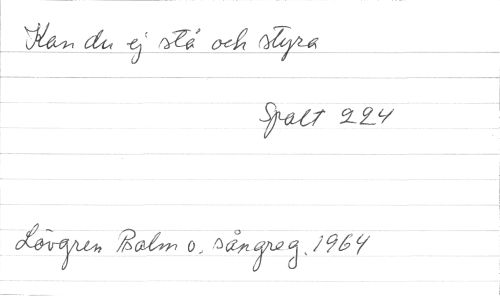 Kan du ej stå och styra
Spalt 224
Lövgren Psalm o. sångreg. 1964